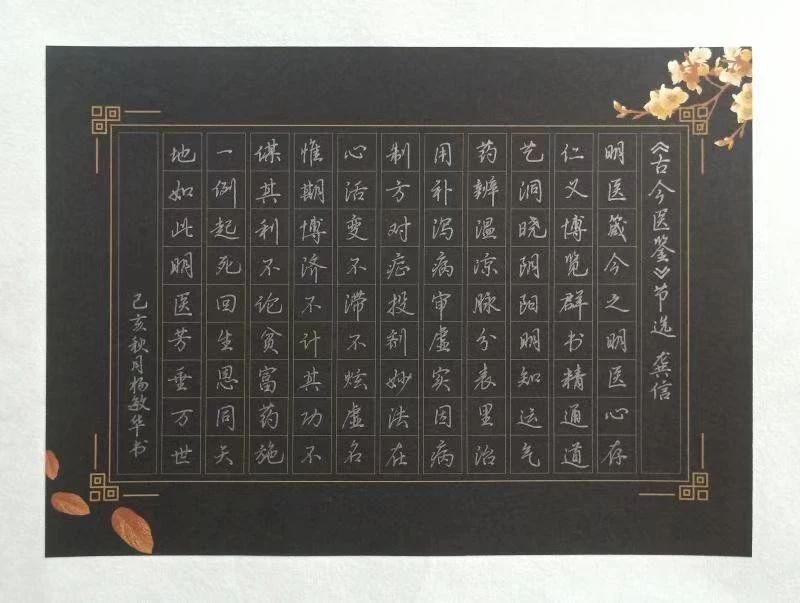 《古今医鉴》节选 龚信
明医箴今之明医心存
仁义博览群书精通道
艺洞晓阴阳明知运气
药辨温凉脉分表里治
用补泻病审虚实因病
制方对症投剂妙法在
心活变不滞不炫虚名
惟期博济不计其功不
谋其利不论贫富药施
一例起死回生恩同天
地如此明医芳垂万世
己亥秋月杨敏华书